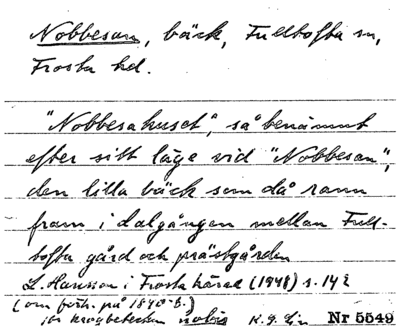 Nobbesan, bäck, Fulltofta sn,
Frosta hd.
"Nobbesahuset", så benämnt
efter sitt läge vid "Nobbesan",
den lilla bäck som då rann
fram i dalgången mellan Full-
tofta gård och prästgården
L. Hansson i Frosta härad (1948) s. 142
(om förh. på 1840-t.)
K. G. L-n Nr 5549